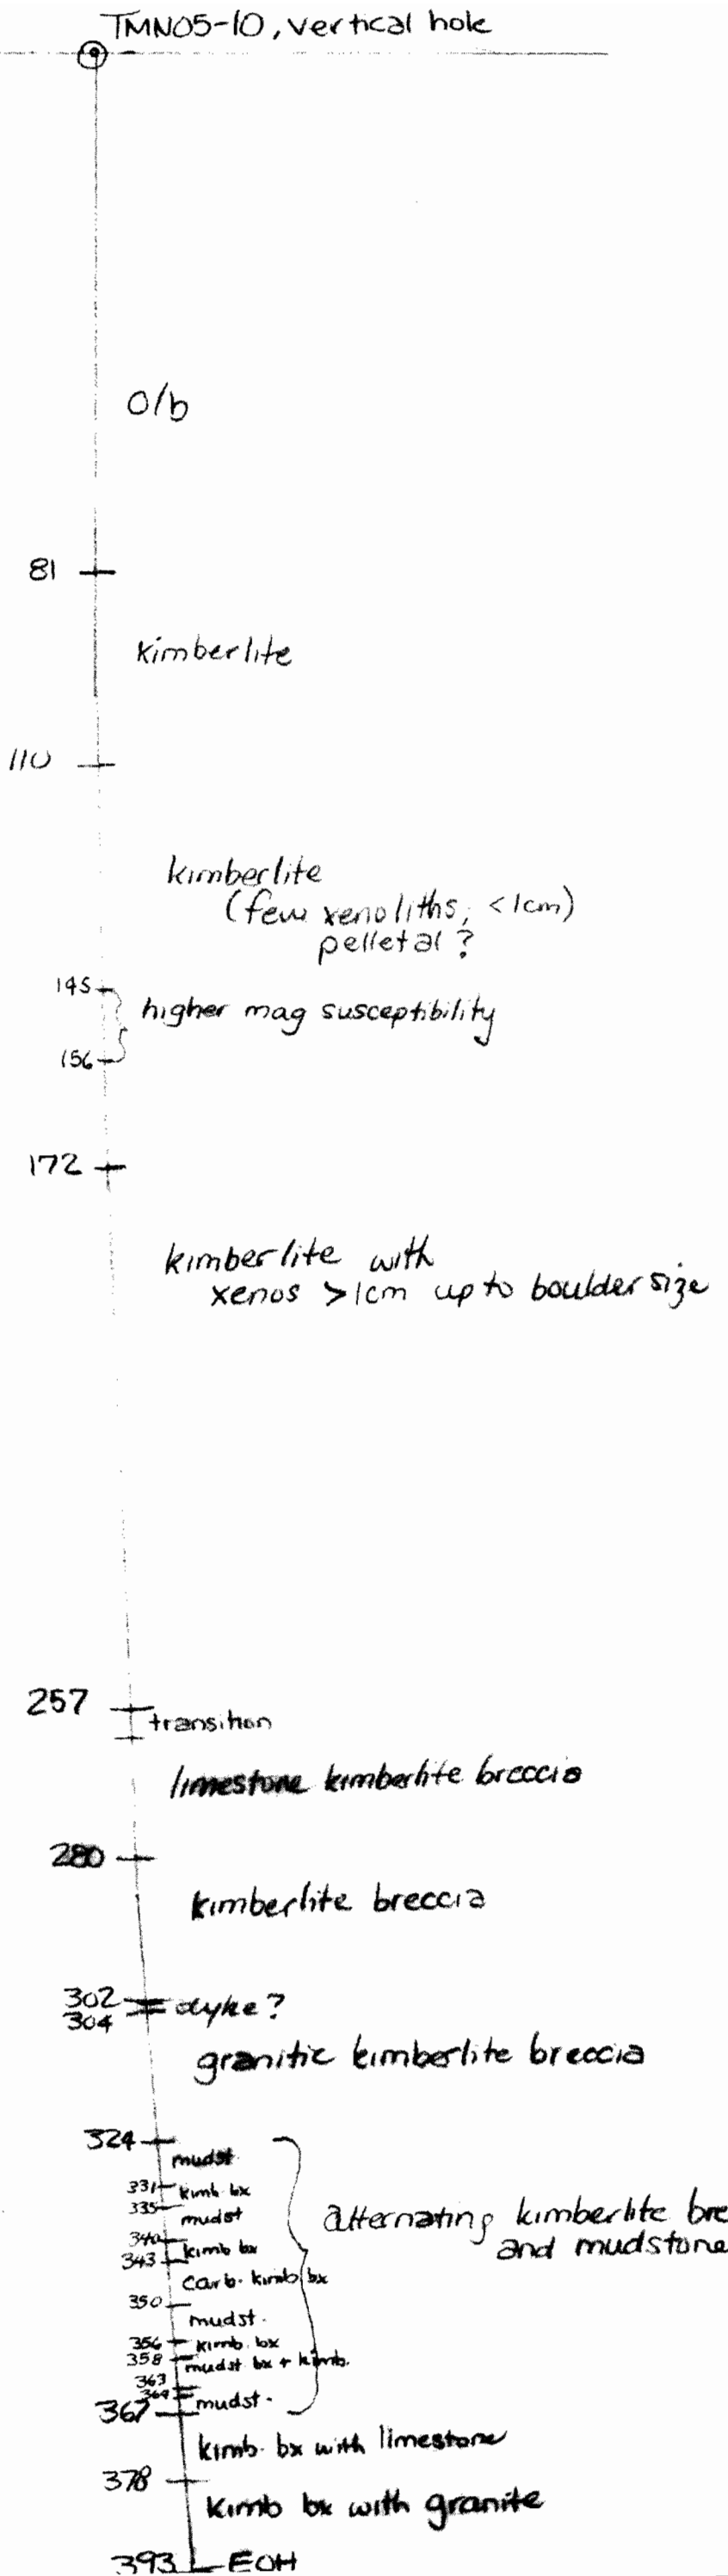 TMN05-10, vertical hole
o/b
81
kimberlite
110
kimberlite
(few xenoliths, <1cm)
pelletal?
145
higher mag susceptibility
156
172
kimberlite with
xenos >1cm up to boulder size
257
transition
limestone kimberlite breccia
280
kimberlite breccia
302
dyke?
304
granitic kimberlite breccia
324
mudst.
331
kimb bx
335
mudst
alternating kimberlite bre
and mudstone
340
kimb bx
343
carb. kimb bx
350
mudst.
356
kimb. bx
358
mudst bx + kimb.
363
364
mudst.
367
kimb. bx with limestone
378
kimb bx with granite
393
EOH